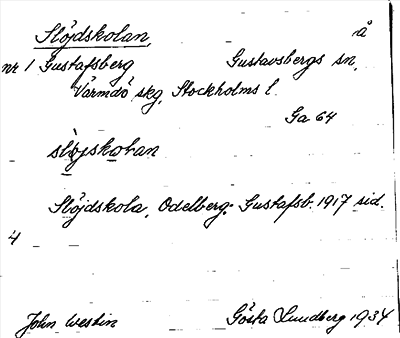 Slöjdskolan, å
nr 1 Gustafsberg Gustavsbergs sn,
Värmdö skg, Stockholms l.
Ga 64
slöjskolan
Slöjdskola, Odelberg: Gustafsb. 1917 sid.
4
John Westin Gösta Lundberg 1934